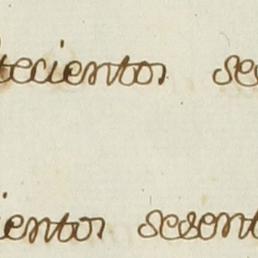 tecientos se
ientos sesent